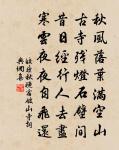 秋風落葉滿空山
古寺殘燈石壁間
昔日經行人去盡
寒雲夜夜自飛還
秋晚宿破山寺